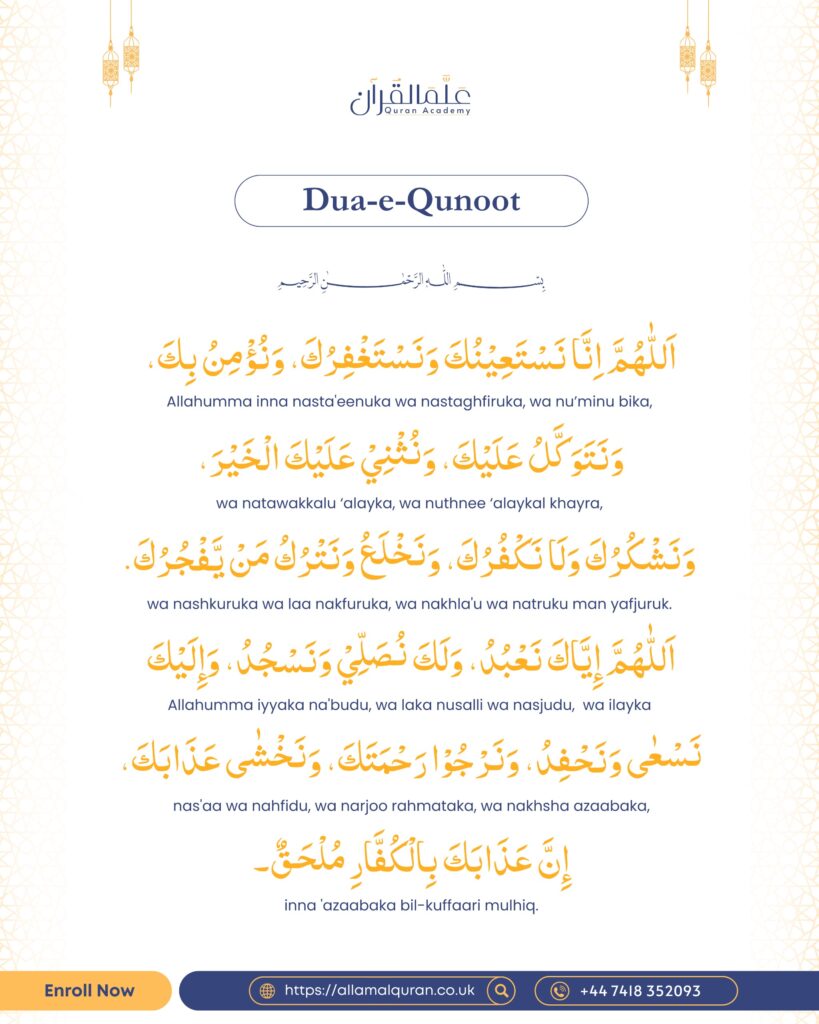 علَّمَالقُرآن
Quran Academy
Dua-e-Qunoot
بِسْمِ اللّٰهِ الرَّحْمٰنِ الرَّحِيمِ
اَللّٰهُمَّ اِنَّا نَسْتَعِيْنُكَ وَنَسْتَغْفِرُكَ، وَنُؤْمِنُ بِكَ،
Allahumma inna nasta'eenuka wa nastaghfiruka, wa nu’minu bika,
وَنَتَوَكَّلُ عَلَيْكَ، وَنُثْنِيْ عَلَيْكَ الْخَيْرَ،
wa natawakkalu ‘alayka, wa nuthnee ‘alaykal khayra,
وَنَشْكُرُكَ وَلَا نَكْفُرُكَ، وَنَخْلَعُ وَنَتْرُكُ مَنْ يَّفْجُرُكَ.
wa nashkuruka wa laa nakfuruka, wa nakhla'u wa natruku man yafjuruk.
اَللّٰهُمَّ إِيَّاكَ نَعْبُدُ، وَلَكَ نُصَلِّيْ وَنَسْجُدُ، وَإِلَيْكَ
Allahumma iyyaka na'budu, wa laka nusalli wa nasjudu, wa ilayka
نَسْعٰى وَنَحْفِدُ، وَنَرْجُوْا رَحْمَتَكَ، وَنَخْشٰى عَذَابَكَ،
nas'aa wa nahfidu, wa narjoo rahmataka, wa nakhsha azaabaka,
إِنَّ عَذَابَكَ بِالْكُفَّارِ مُلْحَقٌ۔
inna 'azaabaka bil-kuffaari mulhiq.
Enroll Now
https://allamalquran.co.uk
+44 7418 352093